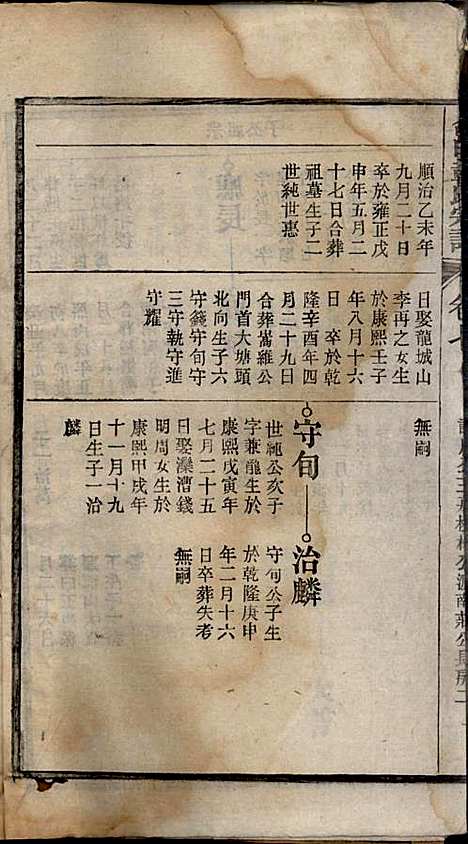 順治乙未年
九月二十日
卒於雍正戊
申年五月二
十七日合葬
祖墓生子二
世純世惪
日娶龍城山
李再之女生
於康熙壬子
年八月十六
日　卒於乾
隆辛酉年四
月二十九日
合葬嵩維公
門首大塘頭
北向生子六
守籛守旬守
三守執守進
守耀
無嗣
守旬
世純公次子
字兼龍生於
康熙戊寅年
七月二十五
日娶灤漕錢
明周女生於
康熙甲戌年
十一月十九
日生子一治
麟
治麟
守旬公子生
於乾隆庚申
年二月十六
日卒葬失考
無嗣